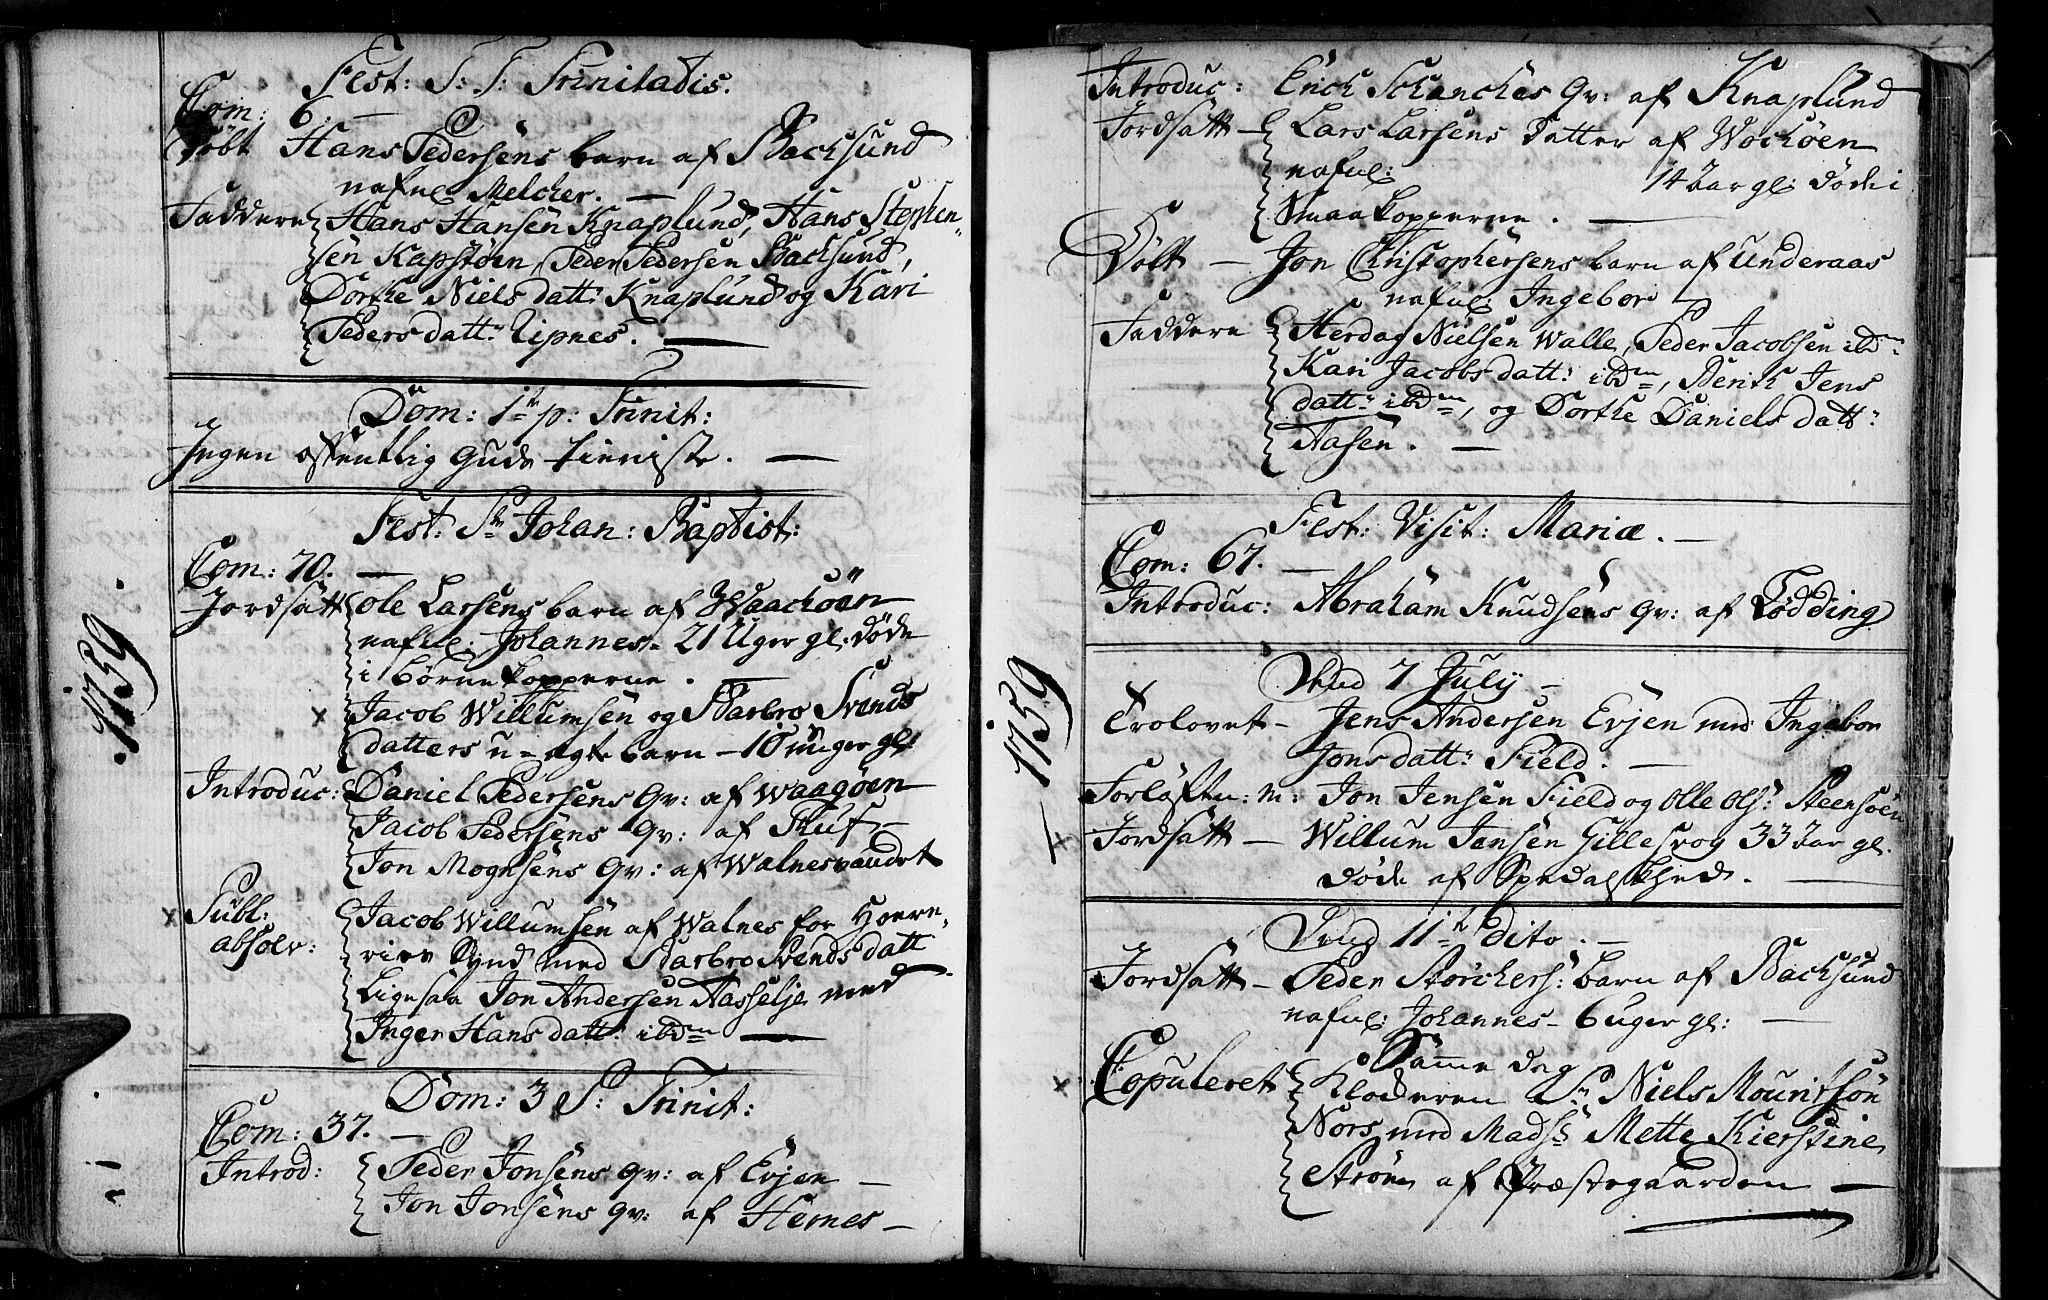 1759.
Fest: S: S: Trinitadis.
Com: 6. —
Døbt Hans Pedersens barn af Backsund
nafnl Melcher. —
Faddere Hans Hansen Knaplund, Hans Stephen-
sen Kapstøen, Peder Pedersen Backsund,
Dorthe Niels datt: Knaplund og Kari
Peders datt: Lipnes. —
Dom: 1te p: Trinit:
Ingen offentlig Guds tieniste. —
Fest: Sti Johan: Baptist:
Com: 70. —
Jordsatt Ole Larsens barn af Waachöen
nafnl: Johannes - 21 Uger gl: døde
i børnekopperne.
x Jacob Willumsen og Barbro Svends
datters u-ægte barn - 10 uger gl:
Introduc: Daniel Pedersens Qv: af Waagöen
Jacob Pedersens Qv: af
Jon Mognsens Qv: af Walnesvandet
x Publ: Jacob Willumsen af Walnes for Hoere-
absolv: Synd med Barbro Svends datt
Ligesaa Jon Andersen Aasselje med
Inger Hans datt: ibdm —
Dom: 3 P: Trinit:
Com: 37. —
Introd: Peder Jonsens Qv: af Evjen —
Jon Jonsens Qv: af Hernes —
1759
Introduc: Erich Schanches Qv: af Knaplund
Jordsatt — Lars Larsens Datter af Wochöen
nafnl: 14 aar gl: døde i
Smaakopperne. —
Døbt — Jon Christophersens barn af Underaas
nafnl: Ingebor
Faddere Herdag Nielsen Walle, Peder Jacobsen ibdm
Kari Jacobs datt: ibdm, Berith Jens
datt: ibdm, og Dorthe Daniels datt:
Aasen. —
Fest: Visit: Mariæ. —
Com: 67. —
Introduc: Abraham Knudsens Qv: af Lødding
Dend 7 July —
x Trolovet — Jens Andersen Evjen med Ingebor
Jons datt: Field. —
Forløften: m: Jon Jensen Field og Olle Ols: Steensöen
x Jordsatt — Willum Jensen Gillesvog 33 aar gl.
døde af Spedalskhed. —
Dend 11te dito. —
Jordsatt — Peder Storckers: barn af Backsund
nafnl: Johannes - 6 uger gl: —
Samme dag
x Copuleret Klockeren Sr Niels Mouritsön
Nors med Mads: Mette Kierstine
Strøm af Præstegaarden —